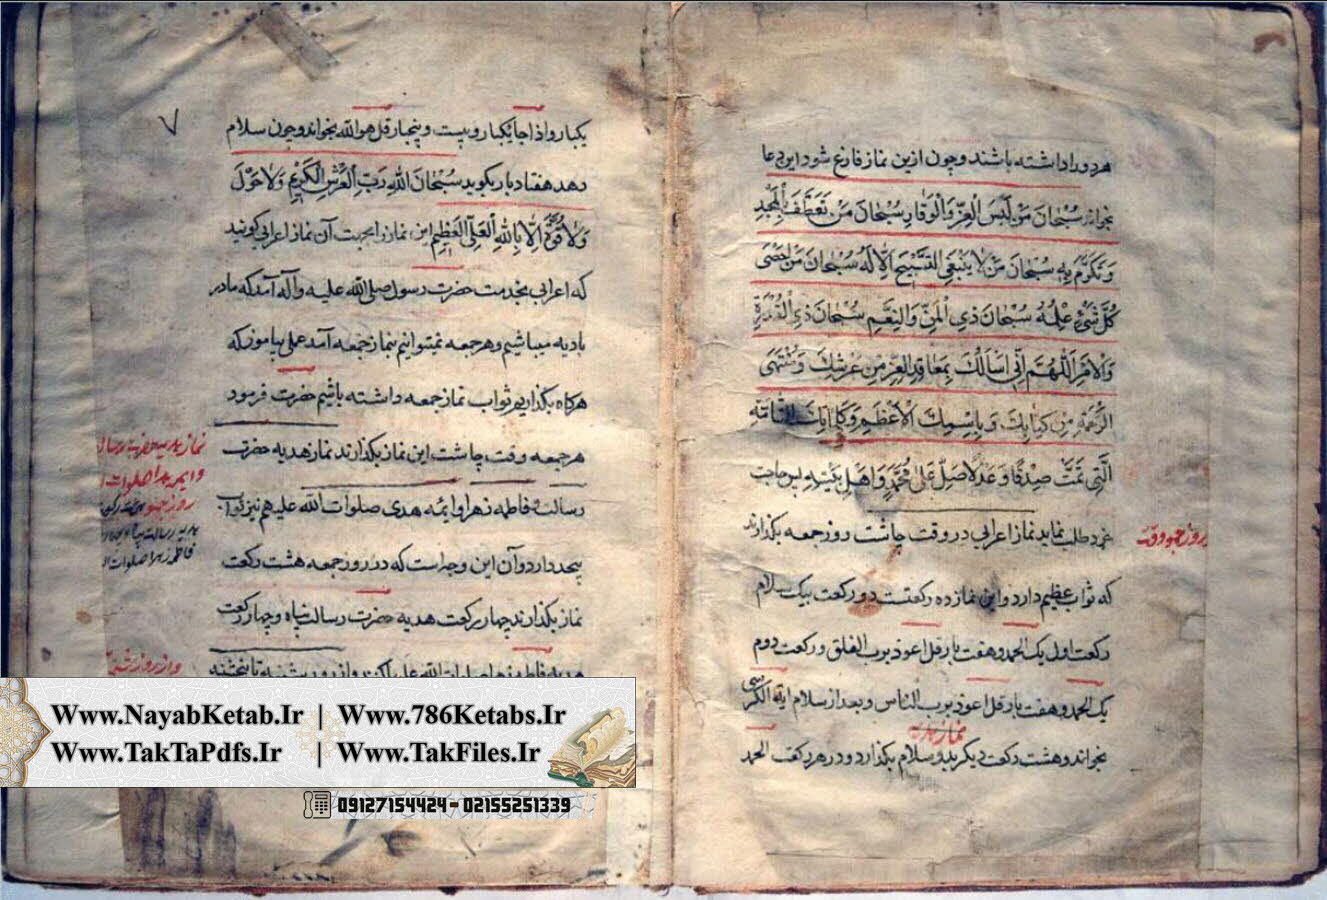 هر دو را داشته باشند و چون ازین نماز فارغ شود این دعا
بخواند سُبْحَانَ مَنْ لَبِسَ الْعِزَّ وَالْوَقَارَ سُبْحَانَ مَنْ تَعَطَّفَ بِالْمَجْدِ
وَتَكَرَّمَ بِهِ سُبْحَانَ مَنْ لَا يَنْبَغِي التَّسْبِيحُ اِلَّا لَهُ سُبْحَانَ مَنْ اَحْصَى
كُلَّ شَيْءٍ عِلْمُهُ سُبْحَانَ ذِي الْمَنِّ وَالنِّعَمِ سُبْحَانَ ذِي الْقُدْرَةِ
وَالْاَمْرِ اَللّٰهُمَّ اِنِّي اَسْاَلُكَ بِمَعَاقِدِ الْعِزِّ مِنْ عَرْشِكَ وَمُنْتَهَى
الرَّحْمَةِ مِنْ كِتَابِكَ وَبِاسْمِكَ الْاَعْظَمِ وَكَلِمَاتِكَ التَّامَّةِ
الَّتِي تَمَّتْ صِدْقًا وَعَدْلًا صَلِّ عَلَى مُحَمَّدٍ وَاَهْلِ بَيْتِهِ پس حاجت
خود طلب نماید نماز اعرابی در وقت چاشت روز جمعه بکذارند
روز جمعه وقت
که ثواب عظیم دارد و این نماز ده رکعتست دو رکعت بیک سلام
رکعت اول یک الحمد و هفت بار قل اعوذ برب الفلق و رکعت دوم
یک الحمد و هفت بار قل اعوذ برب الناس و بعد از سلام ایة الکرسی
بخواند و هشت رکعت دیکر بدو سلام بکذارد و در هر رکعت الحمد
۷
یکبار و اذا جا یکبار و بیست و پنجبار قل هو الله بخواند و چون سلام
دهد هفتاد بار بکوید سُبْحَانَ اللهِ رَبِّ الْعَرْشِ الْكَرِيمِ وَلَا حَوْلَ
وَلَا قُوَّةَ اِلَّا بِاللهِ الْعَلِيِّ الْعَظِيمِ این نماز را بجهت آن نماز اعرابی کویند
که اعرابی بخدمت حضرت رسول صلی الله علیه و آله آمد که ما در
بادیه میباشیم و هر جمعه نمیتوانیم بنماز جمعه آمد عملی بیاموز که
هرکاه بکذاریم ثواب نماز جمعه داشته باشیم حضرت فرمود
هر جمعه وقت چاشت این نماز بکذارند نماز هدیه حضرت
رسالت و فاطمه زهرا و ائمه هدی صلوات الله علیهم نیز ثواب
بیحد دارد و آن این وجه است که در روز جمعه هشت رکعت
نماز بکذارند چهار رکعت هدیه حضرت رسالت پناه و چهار رکعت
نماز هدیه حضرت رسالت
روز جمعه
فاطمه زهرا صلوات
Www.NayabKetab.Ir | Www.786Ketabs.Ir
Www.TakTaPdfs.Ir | Www.TakFiles.Ir
09127154424-02155251339